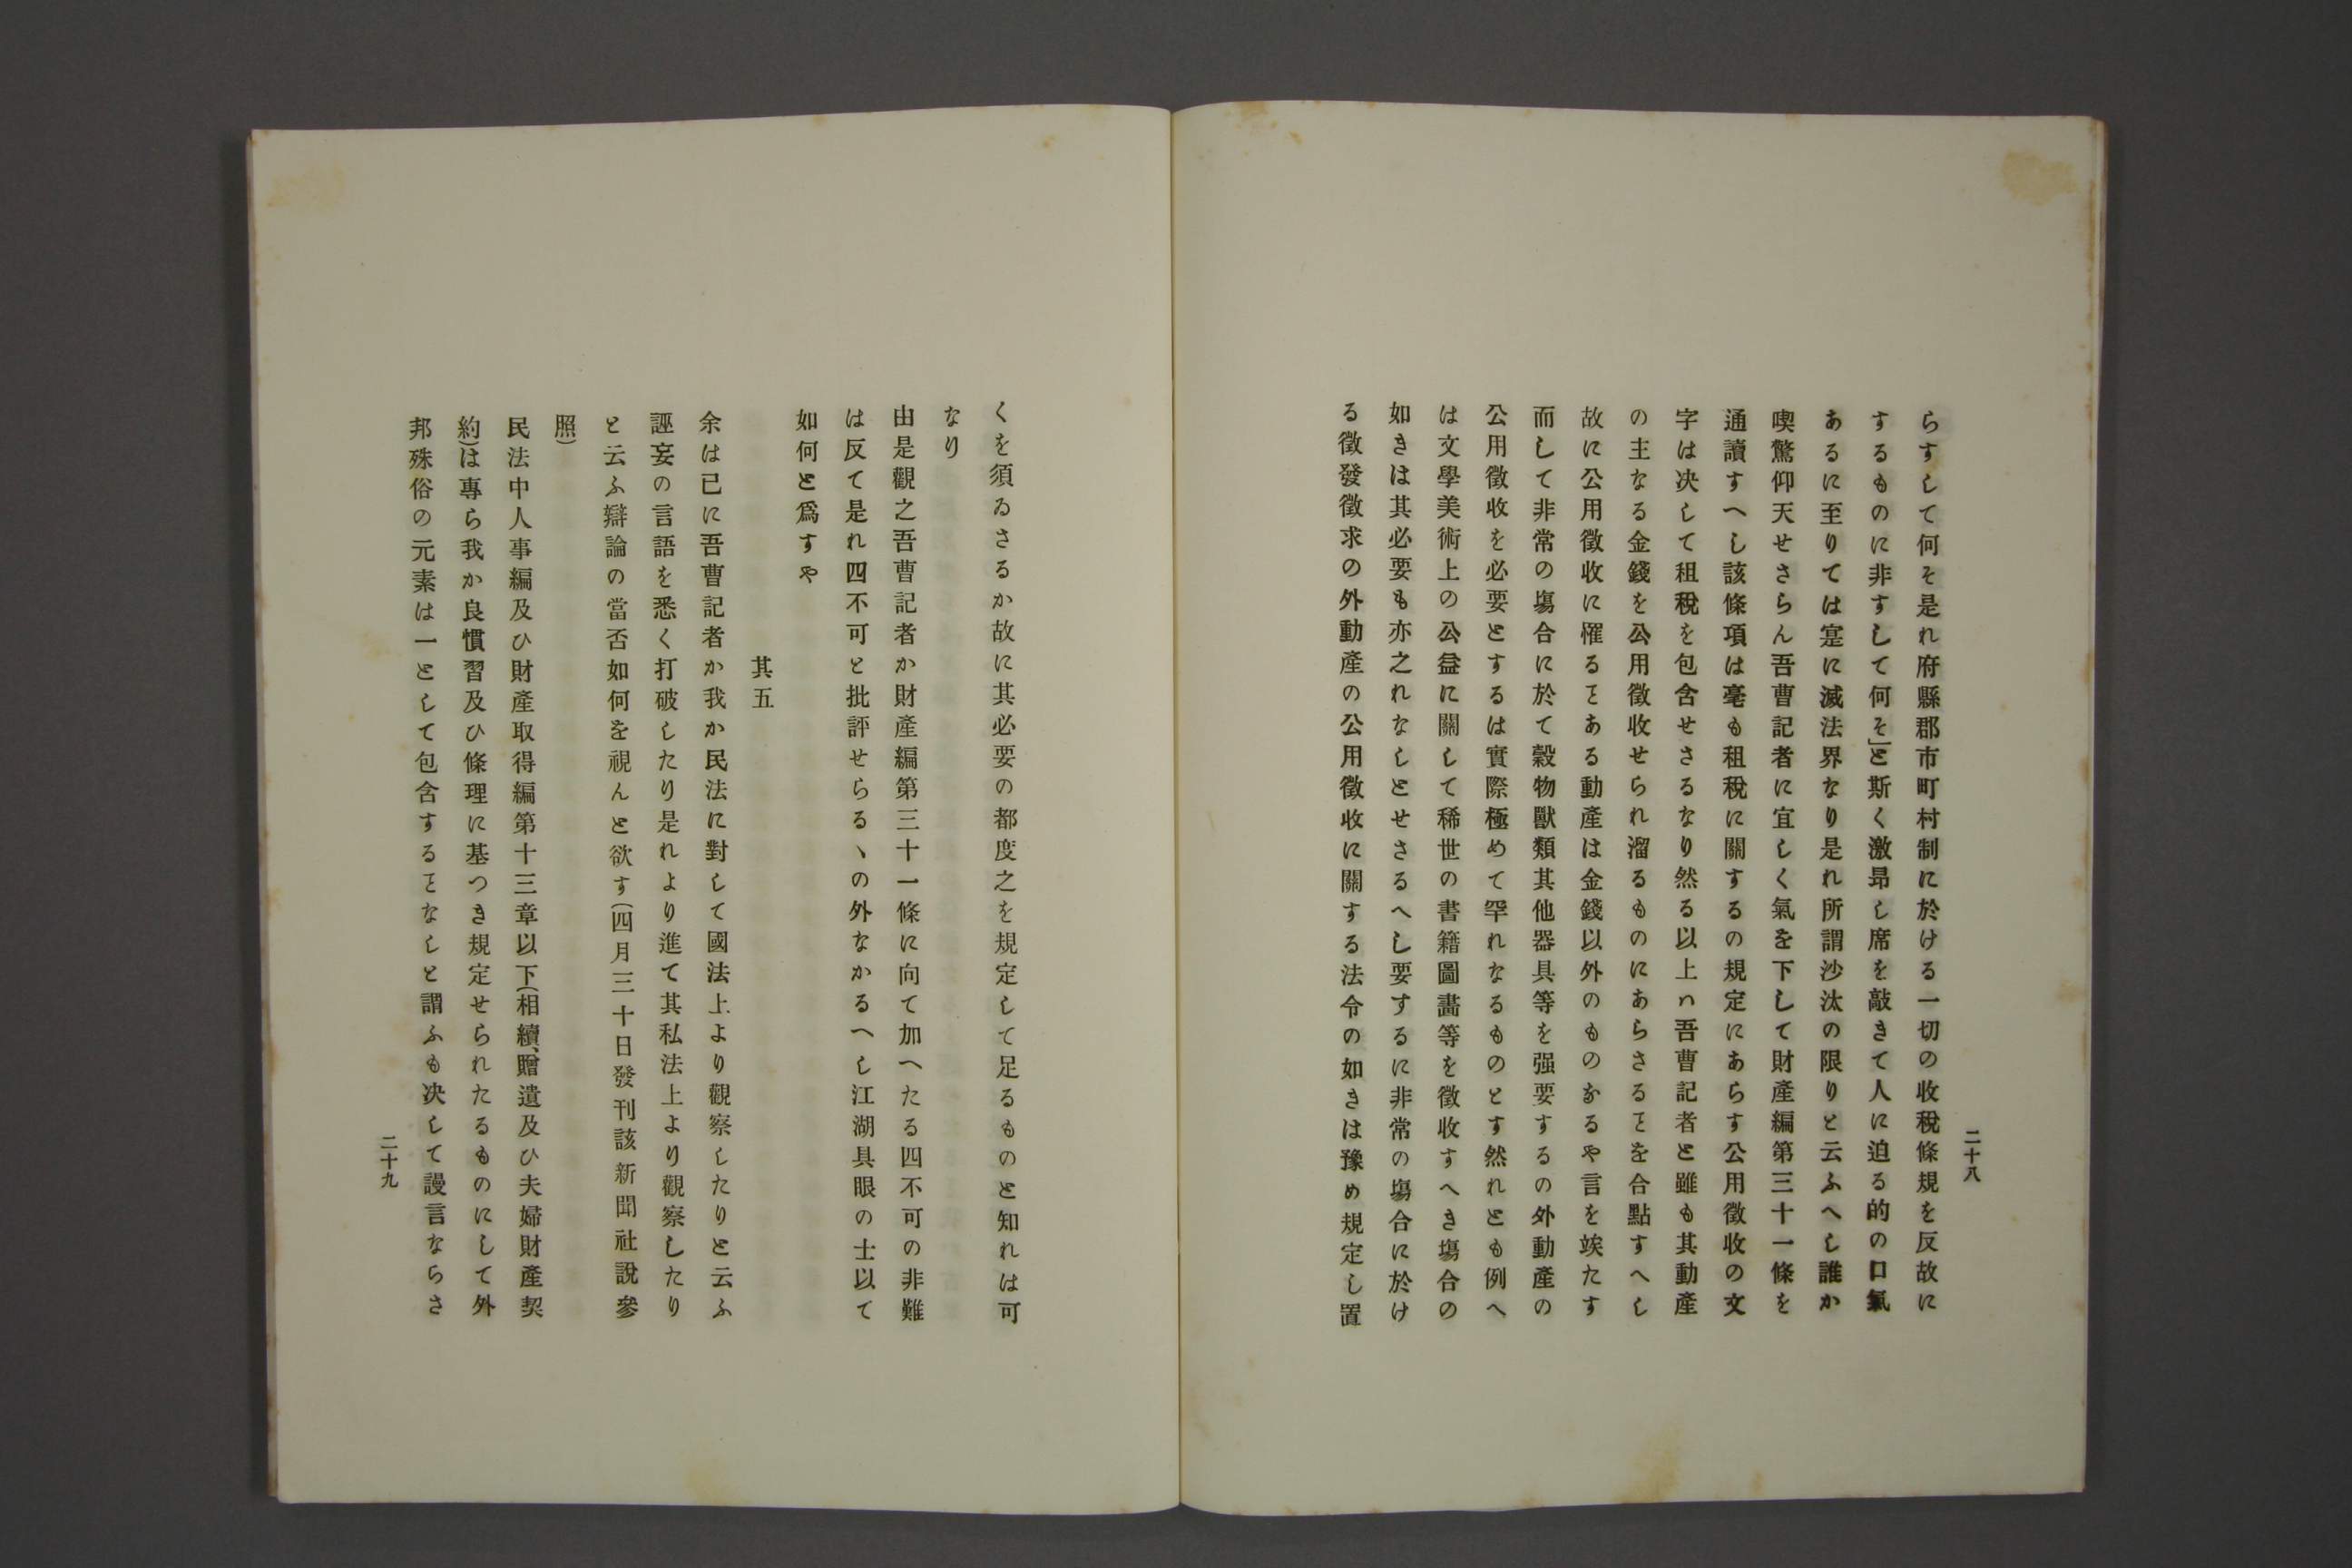 二十八
らすして何そ是れ府縣郡市町村制に於ける一切の收税條規を反故に
するものに非すして何そ」と斯く激昻し席を敲きて人に迫る的の口氣
あるに至りては寔に滅法界なり是れ所謂沙汰の限りと云ふへし誰か
喫驚仰天せさらん吾曹記者に宜しく氣を下して財產編第三十一條を
通讀すへし該條項は毫も租税に關するの規定にあらす公用徵收の文
字は决して租税を包含せさるなり然る以上ハ吾曹記者と雖も其動產
の主なる金錢を公用徵收せられ溜るものにあらさるヿを合點すへし
故に公用徵收に罹るヿある動產は金錢以外のものなるや言を竢たす
而して非常の塲合に於て穀物獸類其他器具等を强要するの外動產の
公用徵收を必要とするは實際極めて罕れなるものとす然れとも例へ
は文學美術上の公益に關して稀世の書籍圖畵等を徵收すへき塲合の
如きは其必要も亦之れなしとせさるへし要するに非常の塲合に於け
る徵發徵求の外動產の公用徵收に關する法令の如きは豫め規定し置
くを須ゐさるか故に其必要の都度之を規定して足るものと知れは可
なり
由是觀之吾曹記者か財產編第三十一條に向て加へたる四不可の非難
は反て是れ四不可と批評せらるヽの外なかるへし江湖具眼の士以て
如何と爲すや
其五
余は已に吾曹記者か我か民法に對して國法上より觀察したりと云ふ
誣妄の言語を悉く打破したり是れより進て其私法上より觀察したり
と云ふ辯論の當否如何を視んと欲す(四月三十日發刊該新聞社說參
照)
民法中人事編及ひ財產取得編第十三章以下(相續、贈遺及ひ夫婦財產契
約)は專ら我か良慣習及ひ條理に基つき規定せられたるものにして外
邦殊俗の元素は一として包含するヿなしと謂ふも决して謾言ならさ
二十九